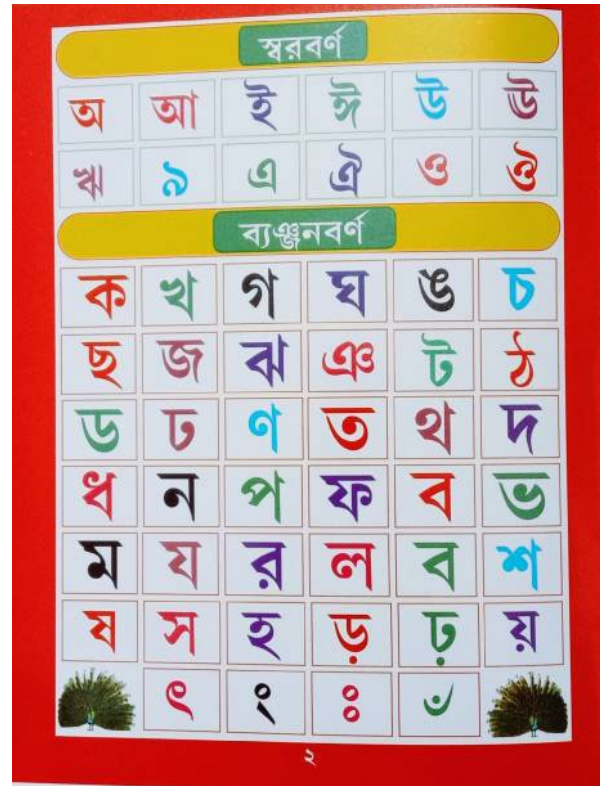 স্বরবর্ণ
অ আ ই ঈ উ ঊ
ঋ ৯ এ ঐ ও ঔ
ব্যঞ্জনবর্ণ
ক খ গ ঘ ঙ চ
ছ জ ঝ ঞ ট ঠ
ড ঢ ণ ত থ দ
ধ ন প ফ ব ভ
ম য র ল ব শ
ষ স হ ড় ঢ় য়
ৎ ং ঃ ঁ
২